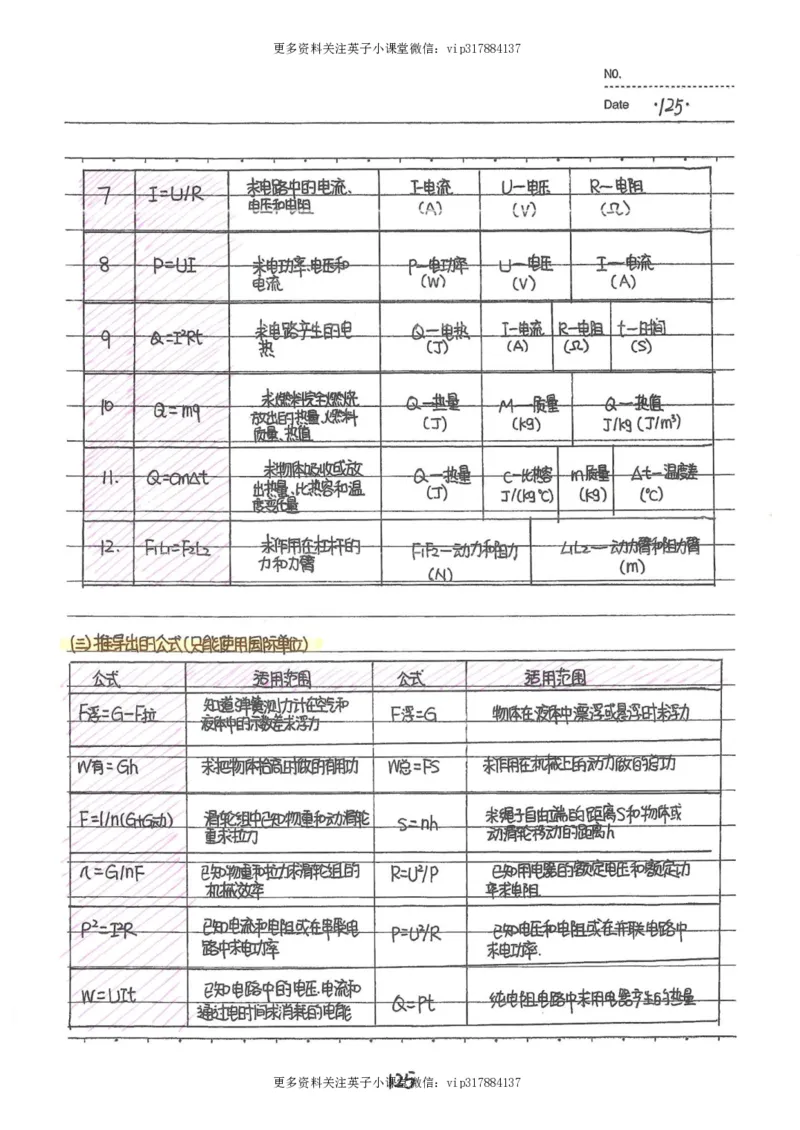 更多资料关注英子小课堂微信：vip317884137
NO.
Date ·125·
7 I=U/R 求电路中的电流、 I-电流 U—电压 R—电阻
电压和电阻 (A) (V) (Ω)
8 P=UI 求电功率、电压和 P—电功率 U—电压 I—电流
电流 (W) (V) (A)
9 Q=I²Rt 求电路产生的电 Q—电热 I-电流 R—电阻 t—时间
热 (J) (A) (Ω) (S)
10 Q=mq 求燃料完全燃烧 Q—热量 M—质量 Q—热值
放出的热量、燃料 (J) (kg) J/kg (J/m³)
质量、热值
11. Q=cmΔt 求物体吸收或放 Q—热量 c—比热容 m质量 Δt—温度差
出热量、比热容和温 (J) J/(kg℃) (kg) (℃)
度变化量
12. F₁L₁=F₂L₂ 求作用在杠杆的 F₁F₂—动力和阻力 L₁L₂—动力臂和阻力臂
力和力臂 (N) (m)
(三)推导出的公式(只能使用国际单位)
公式 适用范围 公式 适用范围
F浮=G-F拉 知道弹簧测力计在空气和 F浮=G 物体在液体中漂浮或悬浮时求浮力
液体中的示数差求浮力
W有=Gh 求把物体抬高时做的有用功 W总=FS 求作用在机械上的动力做的总功
F=1/n(G+G动) 滑轮组中已知物重和动滑轮 S=nh 求绳子自由端的距离S和物体或
重求拉力 动滑轮移动的距离h
η=G/nF 已知物重和拉力求滑轮组的 R=U²/P 已知用电器的额定电压和额定功
机械效率 率求电阻
P²=I²R 已知电流和电阻或在串联电 P=U²/R 已知电压和电阻或在并联电路中
路中求电功率 求电功率.
W=UIt 已知电路中的电压、电流和 Q=Pt 纯电阻电路中求用电器产生的热量
通过电时间求消耗的电能
更多资料关注英子小课堂微信：vip317884137
125